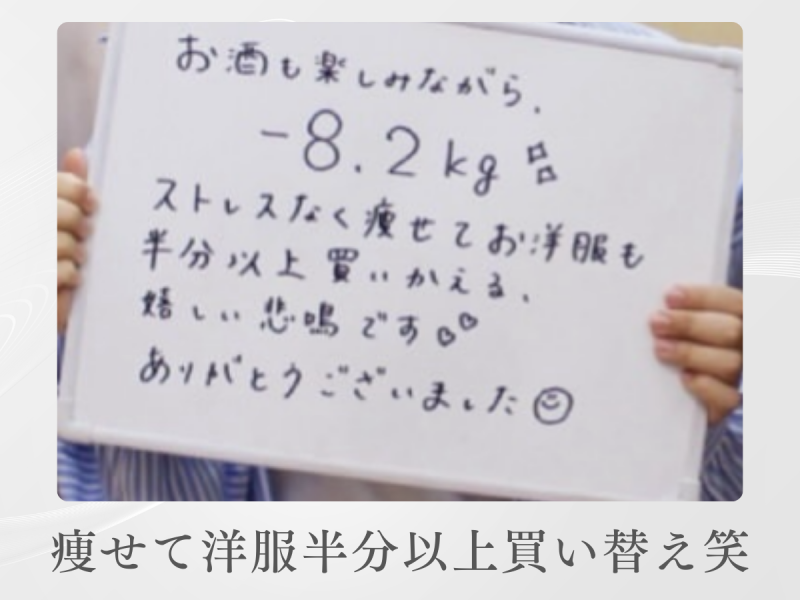 お酒も楽しみながら、
-8.2kg
ストレスなく痩せてお洋服も
半分以上買いかえる、
嬉しい悲鳴です♡♡
ありがとうございました☺
痩せて洋服半分以上買い替え笑